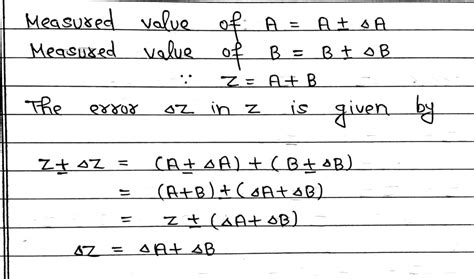 Measured value of A = A ± ΔA
Measured value of B = B ± ΔB
∵ Z = A + B
The error ΔZ in Z is given by
Z ± ΔZ = (A ± ΔA) + (B ± ΔB)
= (A+B) ± (ΔA + ΔB)
= Z ± (ΔA + ΔB)
ΔZ = ΔA + ΔB